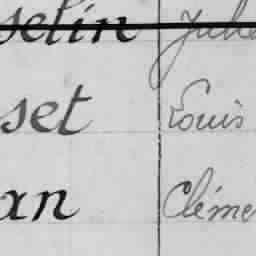 selin Jule
set Louis
an Cléme